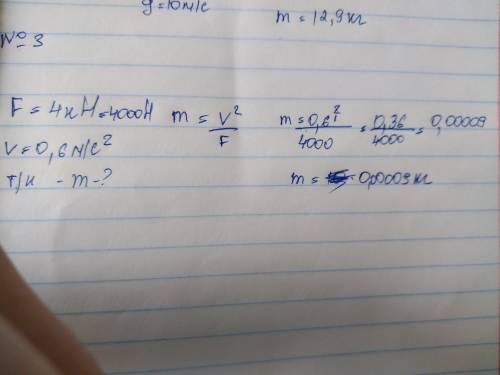 g=10м/с
m = 12,9кг
№ 3
F = 4кН=4000Н m = V²/F m = 0,6²/4000 = 0,36/4000 = 0,00009
V = 0,6м/с²
т/к - m - ?
m = 0,00009кг